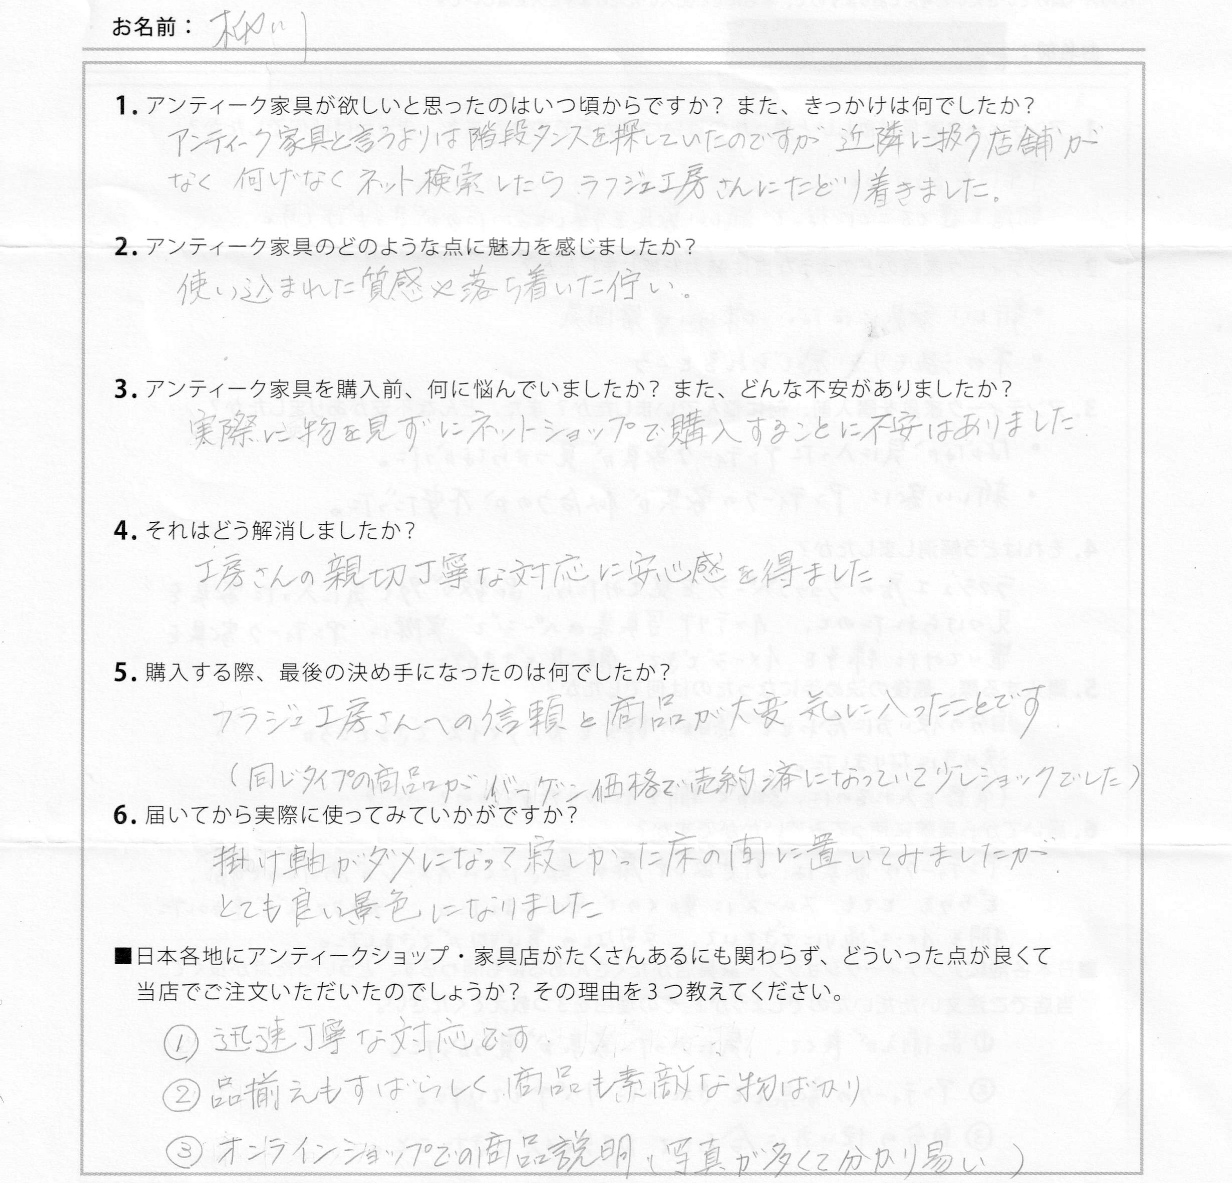 お名前：柳川
1. アンティーク家具が欲しいと思ったのはいつ頃からですか？ また、きっかけは何でしたか？
アンティーク家具と言うよりは階段タンスを探していたのですが 近隣に扱う店舗が
なく 何げなくネット検索したら ラフジュ工房さんにたどり着きました。
2. アンティーク家具のどのような点に魅力を感じましたか？
使い込まれた質感や落ち着いた佇い。
3. アンティーク家具を購入前、何に悩んでいましたか？ また、どんな不安がありましたか？
実際に物を見ずにネットショップで購入することに不安はありました
4. それはどう解消しましたか？
工房さんの親切丁寧な対応に安心感を得ました
5. 購入する際、最後の決め手になったのは何でしたか？
フラジュ工房さんへの信頼と商品が大変気に入ったことです
（同じタイプの商品がバーゲン価格で売約済になっていて少しショックでした）
6. 届いてから実際に使ってみていかがですか？
掛け軸がダメになって寂しかった床の間に置いてみましたが
とても良い景色になりました
■日本各地にアンティークショップ・家具店がたくさんあるにも関わらず、どういった点が良くて
当店でご注文いただいたのでしょうか？ その理由を３つ教えてください。
① 迅速丁寧な対応です
② 品揃えもすばらしく商品も素敵な物ばかり
③ オンラインショップでの商品説明（写真が多くて分かり易い）